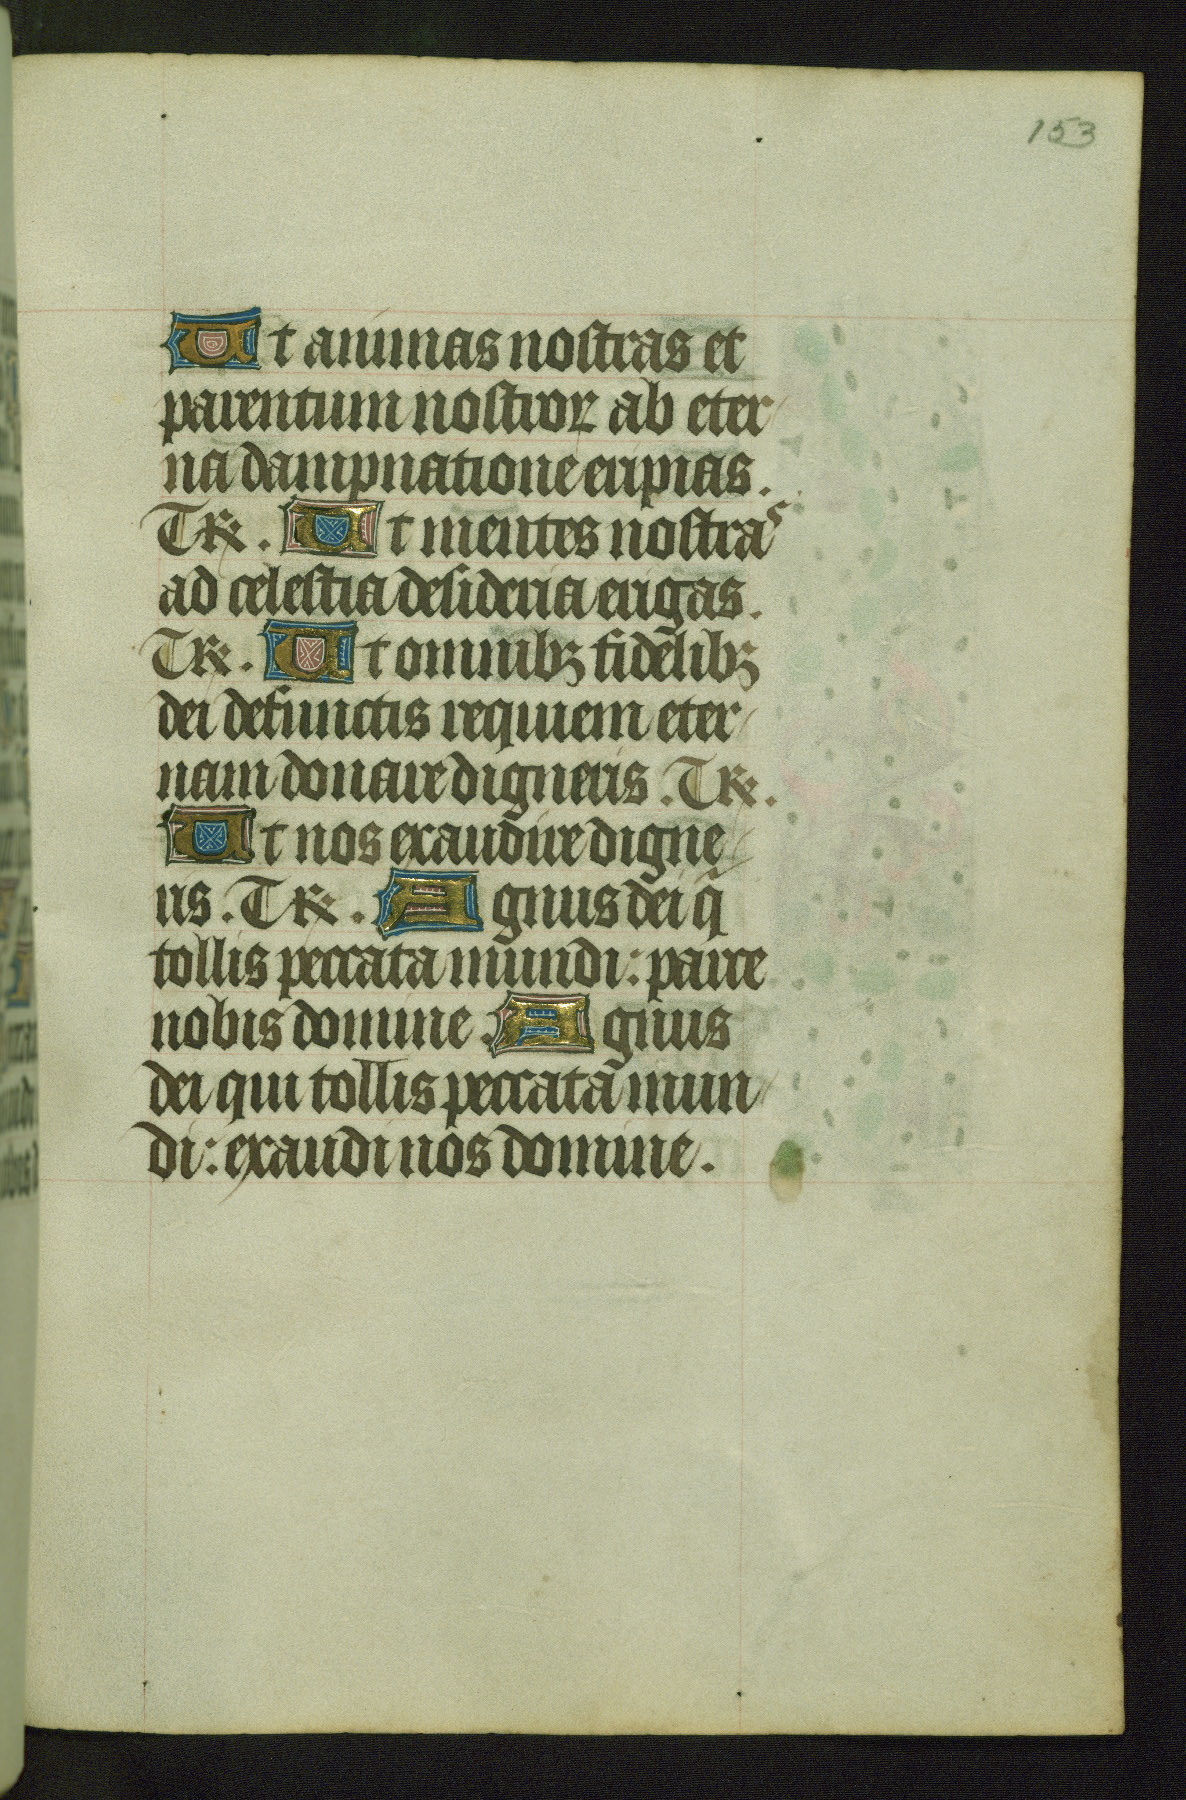 153
Ut animas nostras et
parentum nostroꝝ ab eter
na dampnatione eripias.
Te R. Ut mentes nostras
ad celestia desideria erigas.
Te R. Ut omnibꝫ fidelibꝫ
dei defunctis requiem eter
nam donare digneris. Te R.
Ut nos exaudire digne
ris. Te R. Agnus dei q̄
tollis peccata mundi: parce
nobis domine. Agnus
dei qui tollis peccata mun
di: exaudi nos domine.